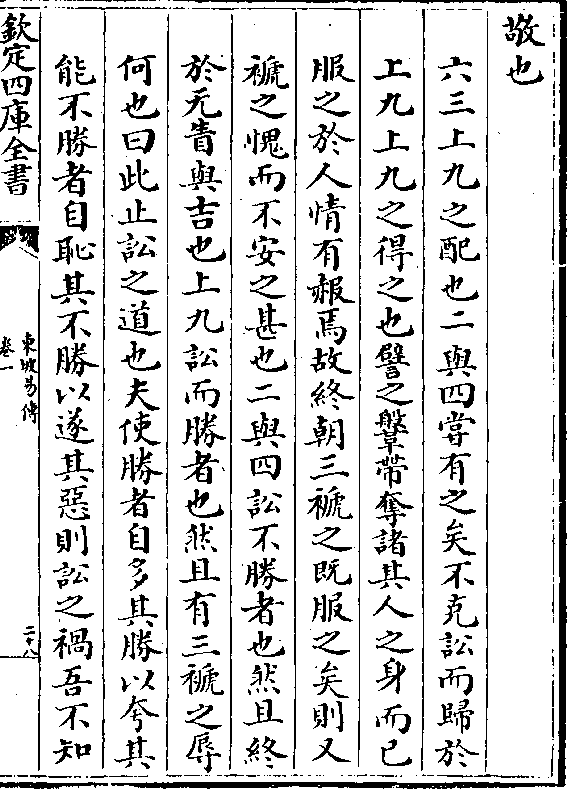 敬也
六三上九之配也二與四嘗有之矣不克訟而歸於
上九上九之得之也譬之鞶帶奪諸其人之身而已
服之於人情有赧焉故終朝三褫之既服之矣則又
褫之愧而不安之甚也二與四訟不勝者也然且終
於无眚與吉也上九訟而勝者也然且有三褫之辱
何也曰此止訟之道也夫使勝者自多其勝以夸其
能不勝者自恥其不勝以遂其惡則訟之禍吾不知
欽定四庫全書
東坡易傳
卷一
二十八